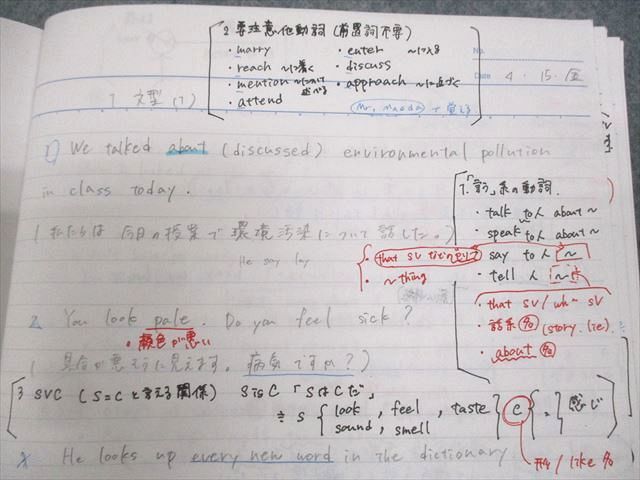 2 要注意他動詞 (前置詞不要)
・marry ・enter 〜に入る
・reach 〜に着く ・discuss
・mention 〜について述べる ・approach 〜に近づく
・attend
Mr. Maeda で覚える
No.
Date 4・15・金
1. 文型 (1)
1) We talked about (discussed) environmental pollution
in class today.
(私たちは今日の授業で環境汚染について話した。)
He say
1.「言う」系の動詞
・talk to人 about〜
・speak to人 about〜
say to人 〜
・tell 人 〜
・that SV
・〜thing
・that SV / wh〜 SV
・話系名 (story, lie)
・about 名
2. You look pale. Do you feel sick?
・顔色が悪い
(具合が悪そうに見えます。病気ですか?)
3 SVC (S=Cと言える関係) S is C 「SはCだ」
≒ S { look, feel, taste } C { = } 感じ
sound, smell
形 / like 名
He looks up every new word in the dictionary